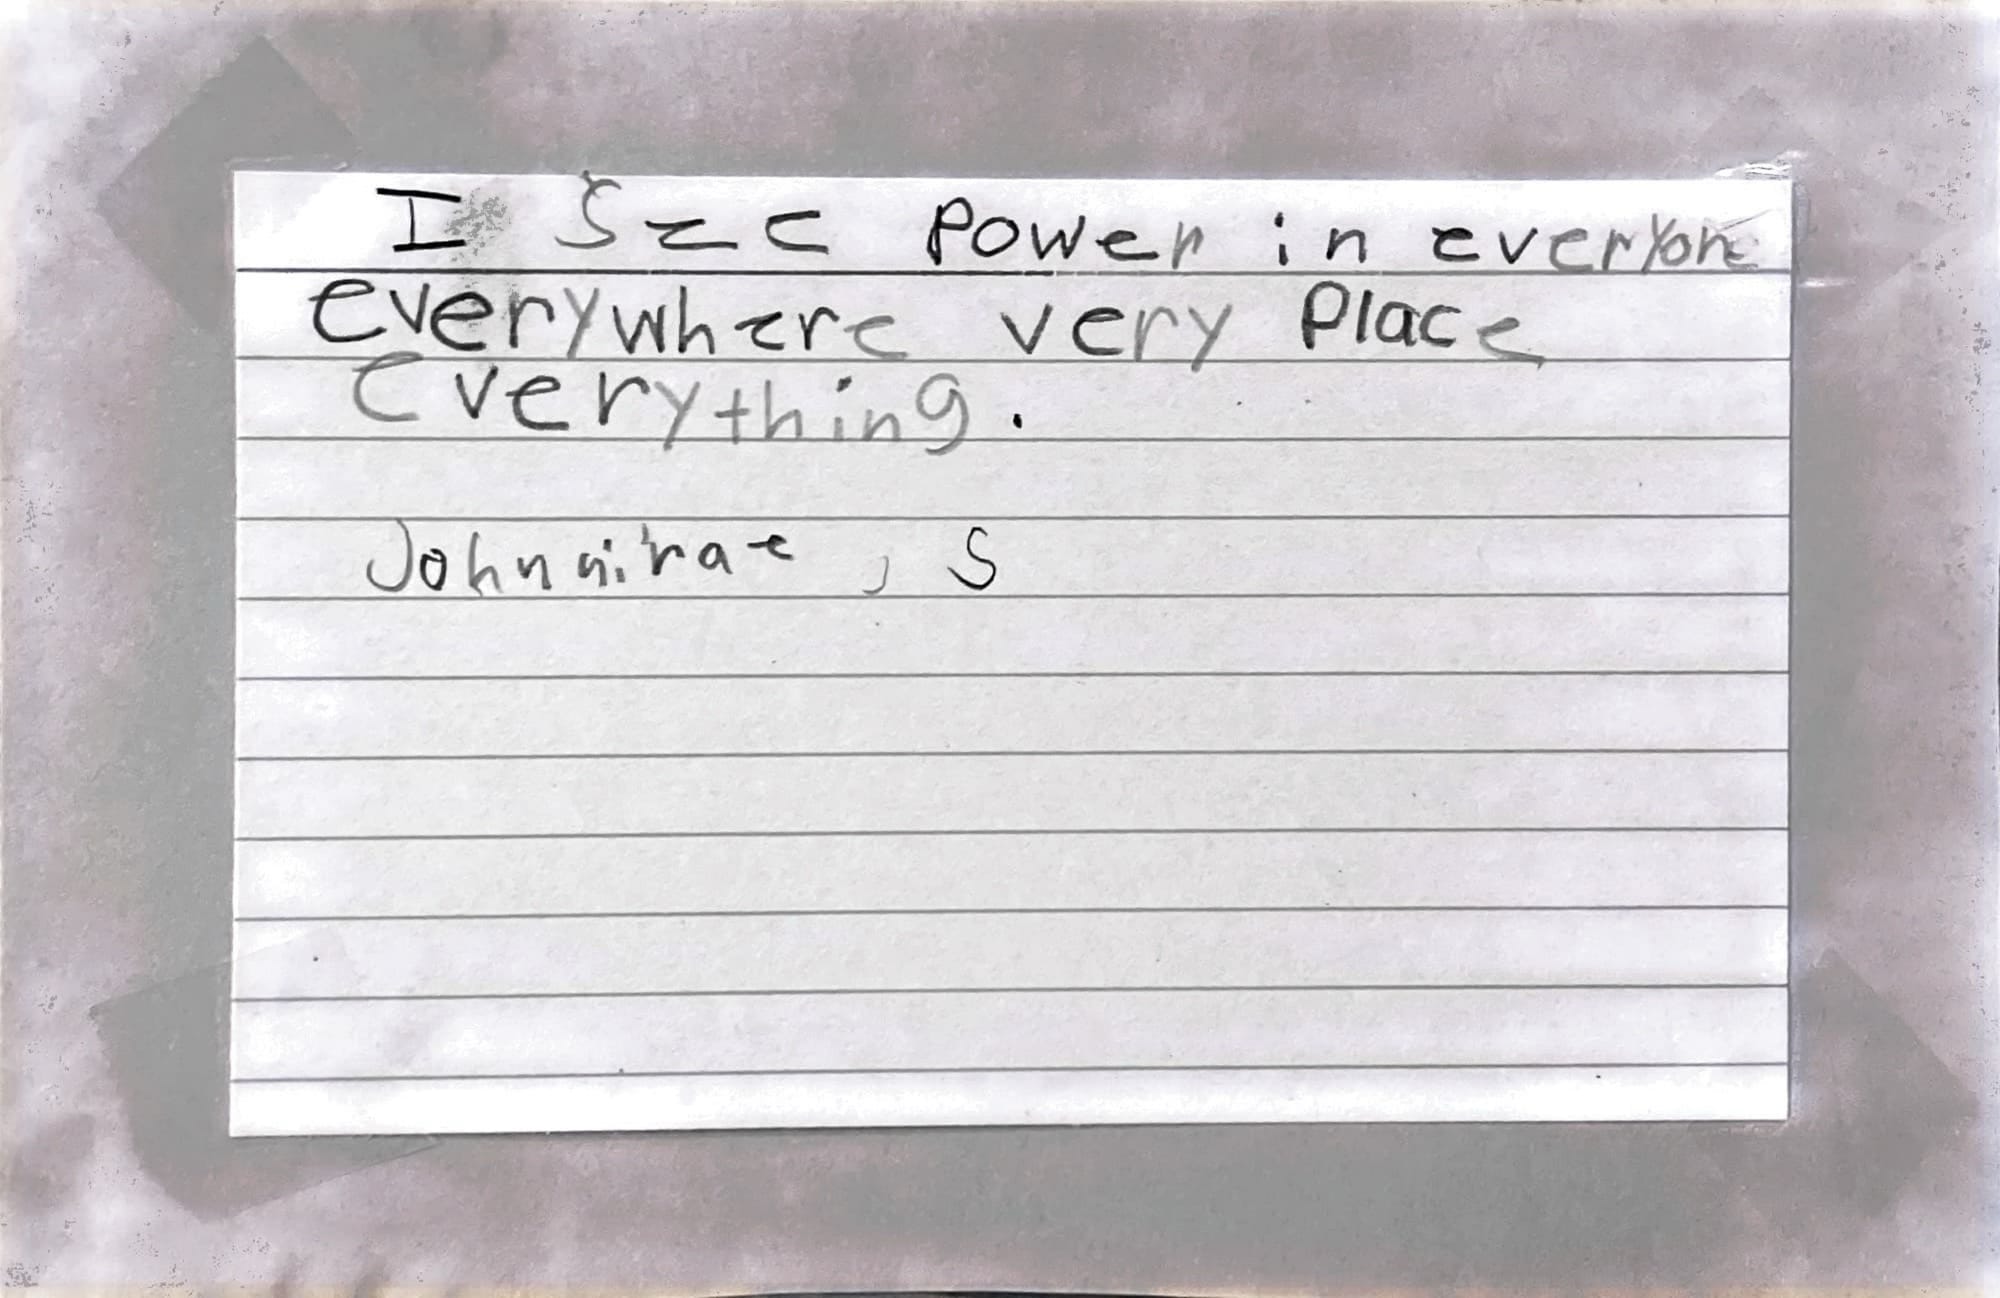 I see power in everyone
everywhere very place
everything.
Johnnirae, S